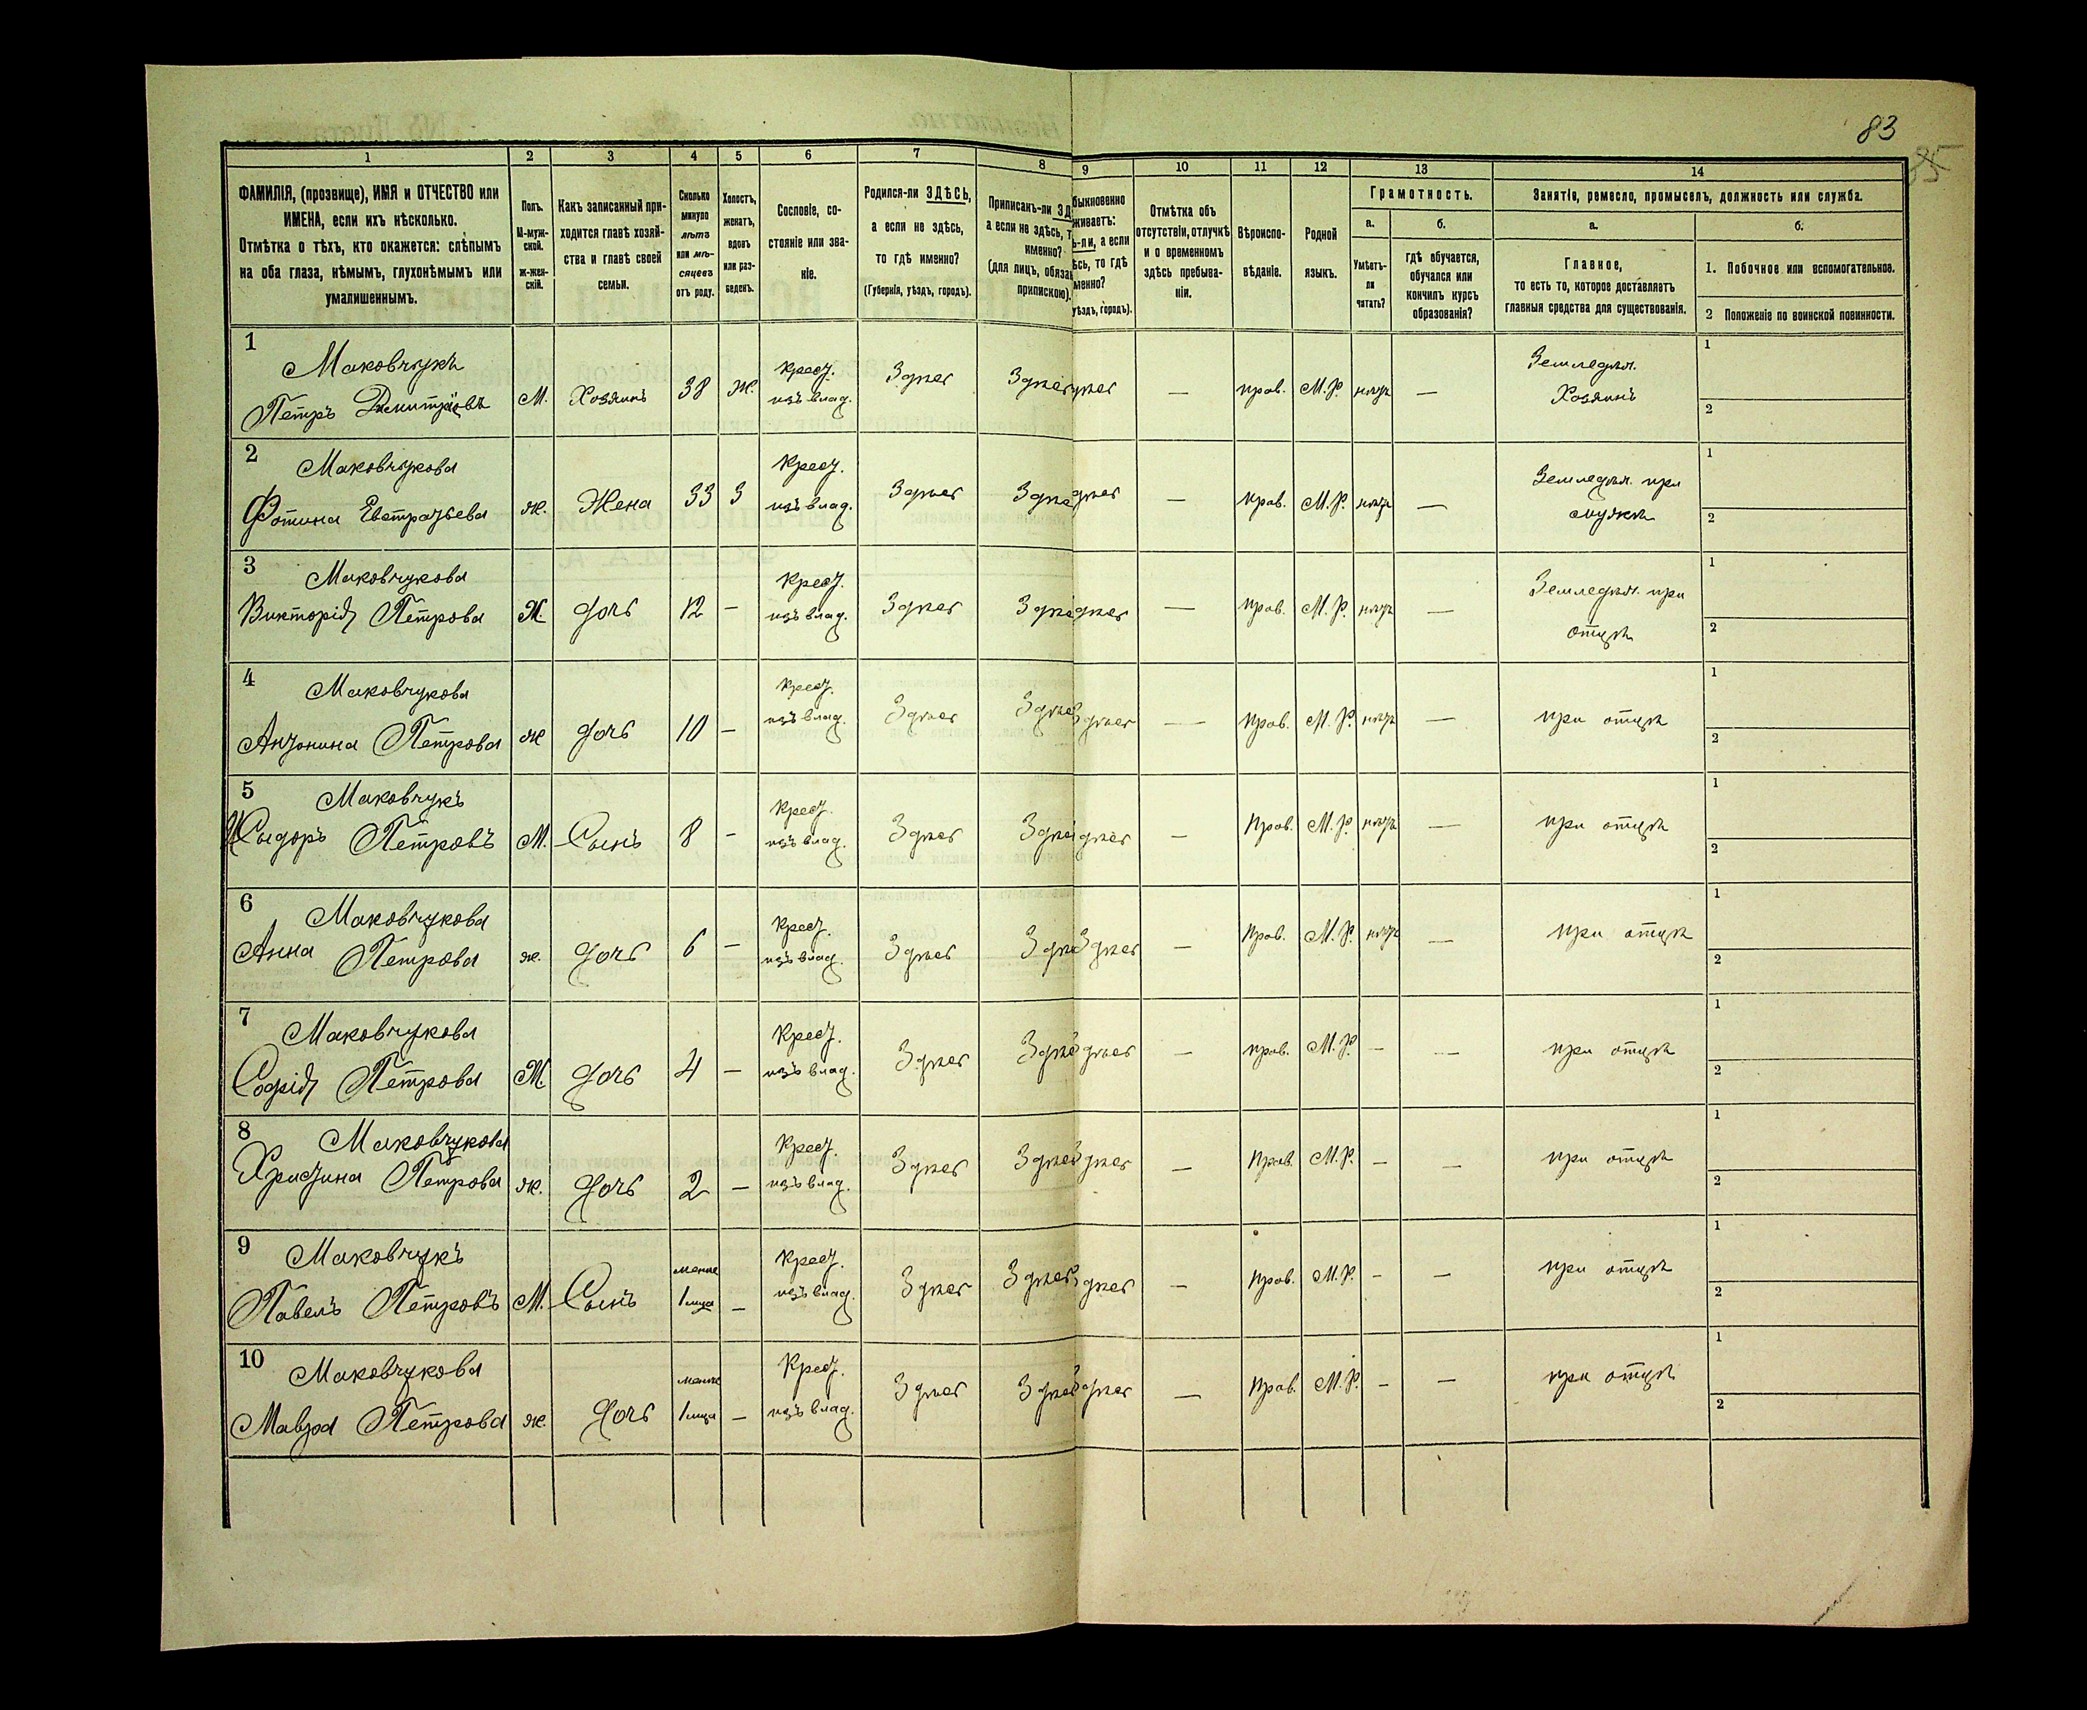 83
85
1 2 3 4 5 6 7 8 9 10 11 12 13 14
ФАМИЛІЯ, (прозвище), ИМЯ и ОТЧЕСТВО или
ИМЕНА, если ихъ нѣсколько.
Отмѣтка о тѣхъ, кто окажется: слѣпымъ
на оба глаза, нѣмымъ, глухонѣмымъ или
умалишеннымъ.
Полъ.
М-муж-
ской.
Ж-жен-
скій.
Какъ записанный при-
ходится главѣ хозяй-
ства и главѣ своей
семьи.
Сколько
минуло
лѣтъ
или мѣ-
сяцевъ
отъ роду.
Холостъ,
женатъ,
вдовъ
или раз-
веденъ.
Сословіе, со-
стояніе или зва-
ніе.
Родился-ли ЗДѢСЬ,
а если не здѣсь,
то гдѣ именно?
(Губернія, уѣздъ, городъ).
Приписанъ-ли ЗД
а если не здѣсь, т
именно?
(для лицъ, обяза
припискою).
быкновенно
живаетъ:
ь-ли, а если
ѣсь, то гдѣ
менно?
уѣздъ, городъ).
Отмѣтка объ
отсутствіи, отлучкѣ
и о временномъ
здѣсь пребыва-
ніи.
Вѣроиспо-
вѣданіе.
Родной
языкъ.
Грамотность.
а.
б.
Умѣетъ-
ли
читать?
гдѣ обучается,
обучался или
кончилъ курсъ
образованія?
Занятіе, ремесло, промыселъ, должность или служба.
а.
б.
Главное,
то есть то, которое доставляетъ
главныя средства для существованія.
1. Побочное или вспомогательное.
2 Положеніе по воинской повинности.
1 Маковчукъ Крест. Земледѣл. 1
Петръ Дмитріевъ М. Хозяинъ 38 Ж. изъ влад. Здѣсь Здѣсь дѣсь прав. М.Р. нѣтъ — Хозяинъ 2
2 Маковчукова Крест. Земледѣл. при 1
Фотина Евстратьева ж. Жена 33 З изъ влад. Здѣсь Здѣ дѣсь — прав. М.Р. нѣтъ — мужѣ 2
3 Маковчукова Крест. Земледѣл. при 1
Викторія Петрова Ж. дочь 12 — изъ влад. Здѣсь Здѣ дѣсь — прав. М.Р. нѣтъ — отцѣ 2
4 Маковчукова Крест. 1
Антонина Петрова ж дочь 10 — изъ влад. Здѣсь Здѣс Здѣсь — прав. М.Р. нѣтъ — при отцѣ 2
5 Маковчукъ Крест. 1
Исыдоръ Петровъ М. Сынъ 8 — изъ влад. Здѣсь Здѣс дѣсь — прав. М.Р. нѣтъ — при отцѣ 2
6 Маковчукова Крест. 1
Анна Петрова ж. дочь 6 — изъ влад. Здѣсь Здѣ Здѣсь — прав. М.Р. нѣтъ — при отцѣ 2
7 Маковчукова Крест. 1
Софія Петрова Ж. дочь 4 — изъ влад. Здѣсь Здѣс дѣсь — прав. М.Р. — — при отцѣ 2
8 Маковчукова Крест. 1
Христина Петрова ж. дочь 2 — изъ влад. Здѣсь Здѣс дѣсь — прав. М.Р. — — при отцѣ 2
9 Маковчукъ менѣе Крест. 1
Павелъ Петровъ М. Сынъ 1 мца — изъ влад. Здѣсь Здѣсь дѣсь — прав. М.Р. — — при отцѣ 2
10 Маковчукова менѣе Крест. 1
Мавра Петрова ж. дочь 1 мца — изъ влад. Здѣсь Здѣс дѣсь — прав. М.Р. — — при отцѣ 2